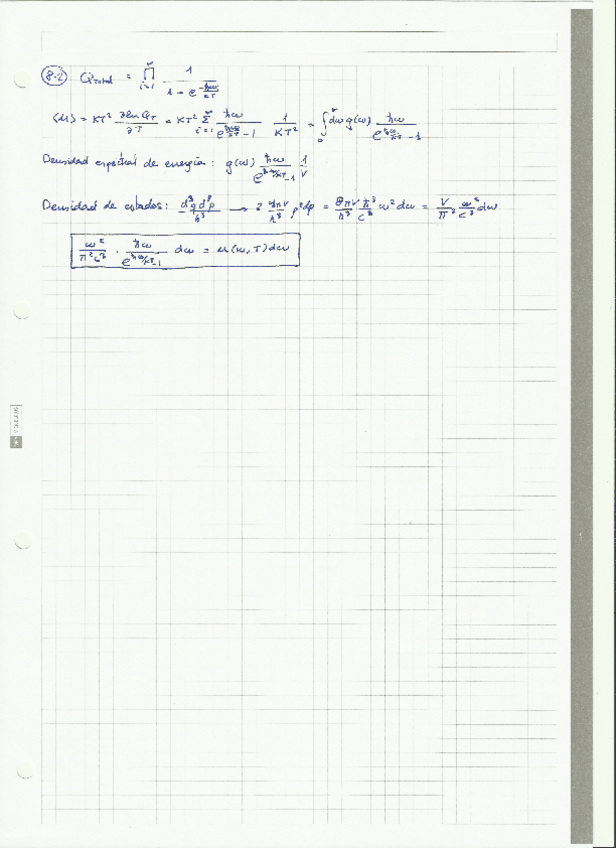 8.2 Q_Total = ∏_{i=1}^{∞} 1/(1 - e^{-ħω/KT})
⟨U⟩ = KT² ∂ln Q_T/∂T = KT² Σ_{i=1}^{∞} ħω/(e^{ħω/KT} - 1) 1/KT² = ∫_0^∞ dω g(ω) ħω/(e^{ħω/KT} - 1)
Densidad espectral de energía: g(ω) ħω/(e^{ħω/KT} - 1) 1/V
Densidad de estados: d³q d³p/h³ → 2 4πV/h³ p²dp = 8πV/h³ ħ³/c³ ω²dω = V/π² ω²/c³ dω
ω²/π²c³ · ħω/(e^{ħω/KT} - 1) dω = u(ω,T)dω